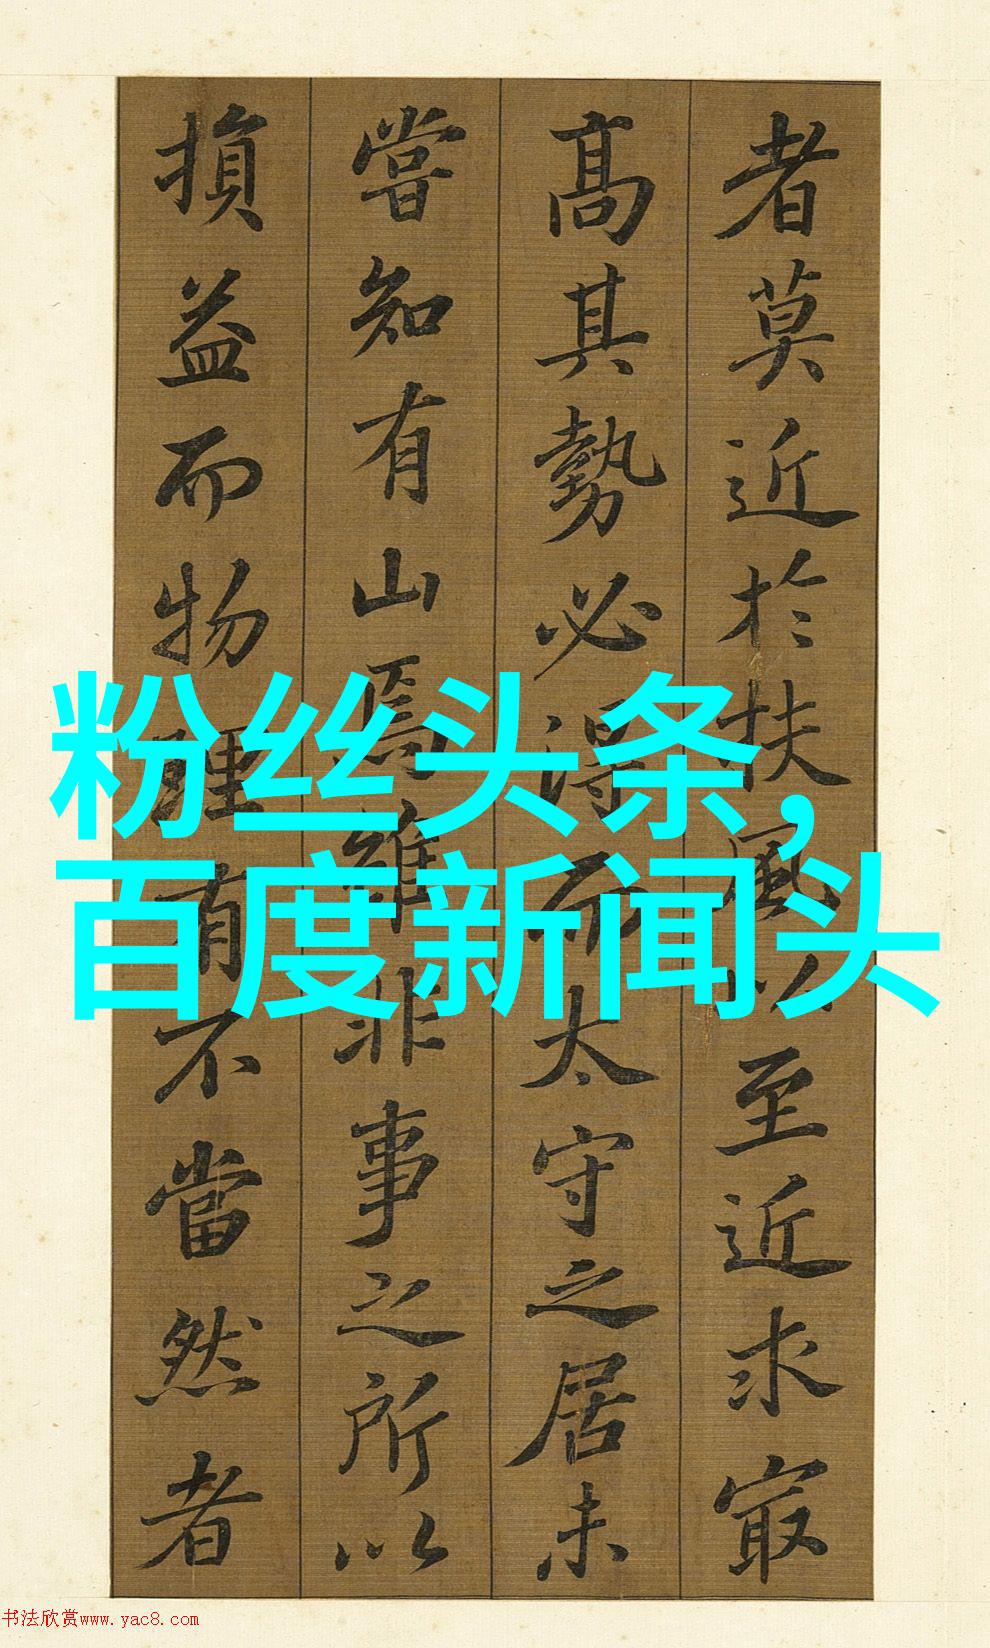 者莫近於扶風以至近求寂
高其勢必得而太守之居未
嘗知有山焉雖非事之所以
損益而物理有不當然者
粉丝头条,
百度新闻头
书法欣赏www.yac8.com